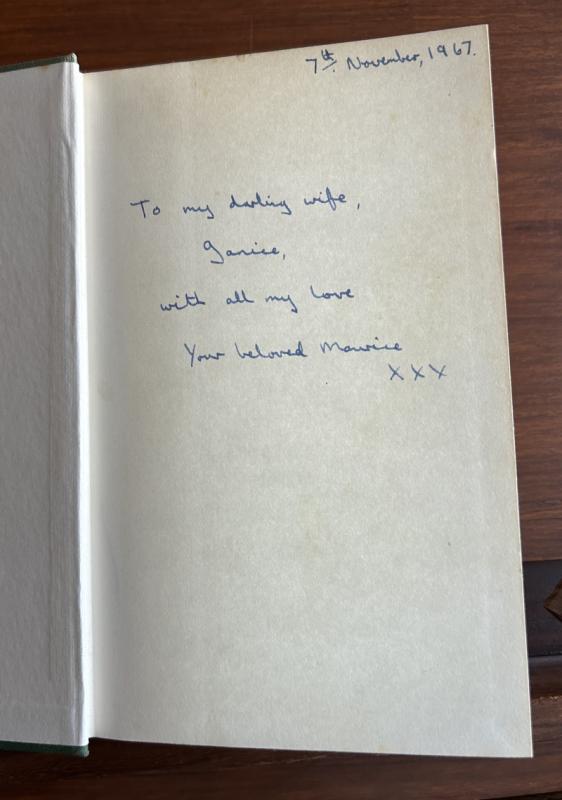 7th. November, 1967.
To my darling wife,
Janice,
with all my love
Your beloved Maurice
x x x